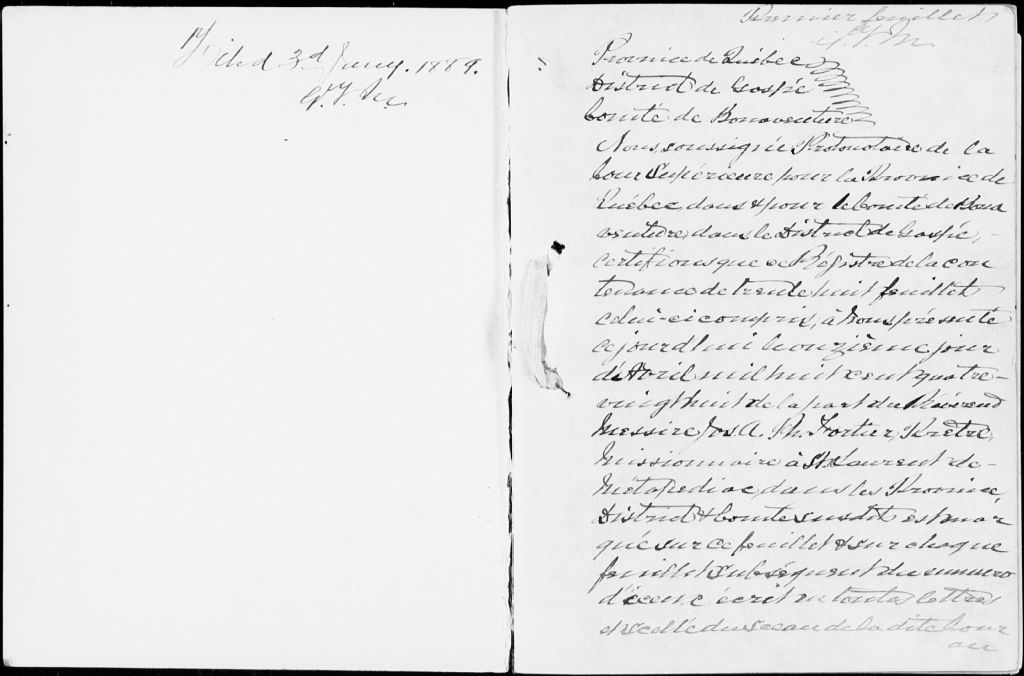 Filed 3d Jany. 1889.
Premier feuillet
Province de Québec
District de Gaspé
Comté de Bonaventure
Nous soussigné Protonotaire de la
Cour Supérieure pour la Province de
Québec, dans & pour le Comté de Bona
venture, dans le District de Gaspé, -
certifions que ce Régistre de la con
tenance de trente huit feuillets
celui-ci compris, à Nous présenté
ce jourd'hui le onzième jour
d'Avril mil huit cent quatre-
vingt huit de la part du Révérend
Messire Jos. A. Ph. Fortier, Prêtre,
Missionnaire à St. Laurent de -
Métapediac, dans les Province,
District & Comté susdit est mar
qué sur ce feuillet & sur chaque
feuillet subséquent du numero
d'iceux, écrit en toutes lettres
et scellé du sceau de la dite Cour
au